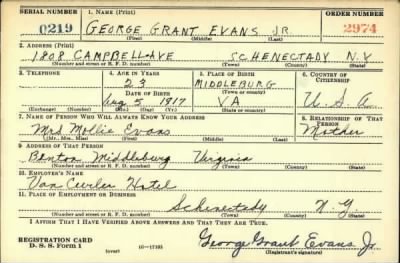 SERIAL NUMBER 1. NAME (Print) ORDER NUMBER
0219 GEORGE GRANT EVANS JR. 2974
(First) (Middle) (Last)
2. ADDRESS (Print)
1808 CAMPBELL AVE SCHENECTADY N.Y
(Number and street or R. F. D. number) (Town) (County) (State)
3. TELEPHONE 4. AGE IN YEARS 5. PLACE OF BIRTH 6. COUNTRY OF CITIZENSHIP
23 MIDDLEBURG
DATE OF BIRTH (Town or county)
Aug 5 1917 VA U.S.A
(Exchange) (Number) (Mo.) (Day) (Yr.) (State or country)
7. NAME OF PERSON WHO WILL ALWAYS KNOW YOUR ADDRESS 8. RELATIONSHIP OF THAT PERSON
Mrs Mollie Evans Mother
(Mr., Mrs., Miss) (First) (Middle) (Last)
9. ADDRESS OF THAT PERSON
Benton Middleburg Virginia
(Number and street or R. F. D. number) (Town) (County) (State)
10. EMPLOYER'S NAME
Van Curler Hotel
11. PLACE OF EMPLOYMENT OR BUSINESS
Schenectady N.Y.
(Number and street or R. F. D. number) (Town) (County) (State)
I AFFIRM THAT I HAVE VERIFIED ABOVE ANSWERS AND THAT THEY ARE TRUE.
REGISTRATION CARD
D. S. S. Form 1 (over) 16—17105 George Grant Evans Jr.
(Registrant's signature)